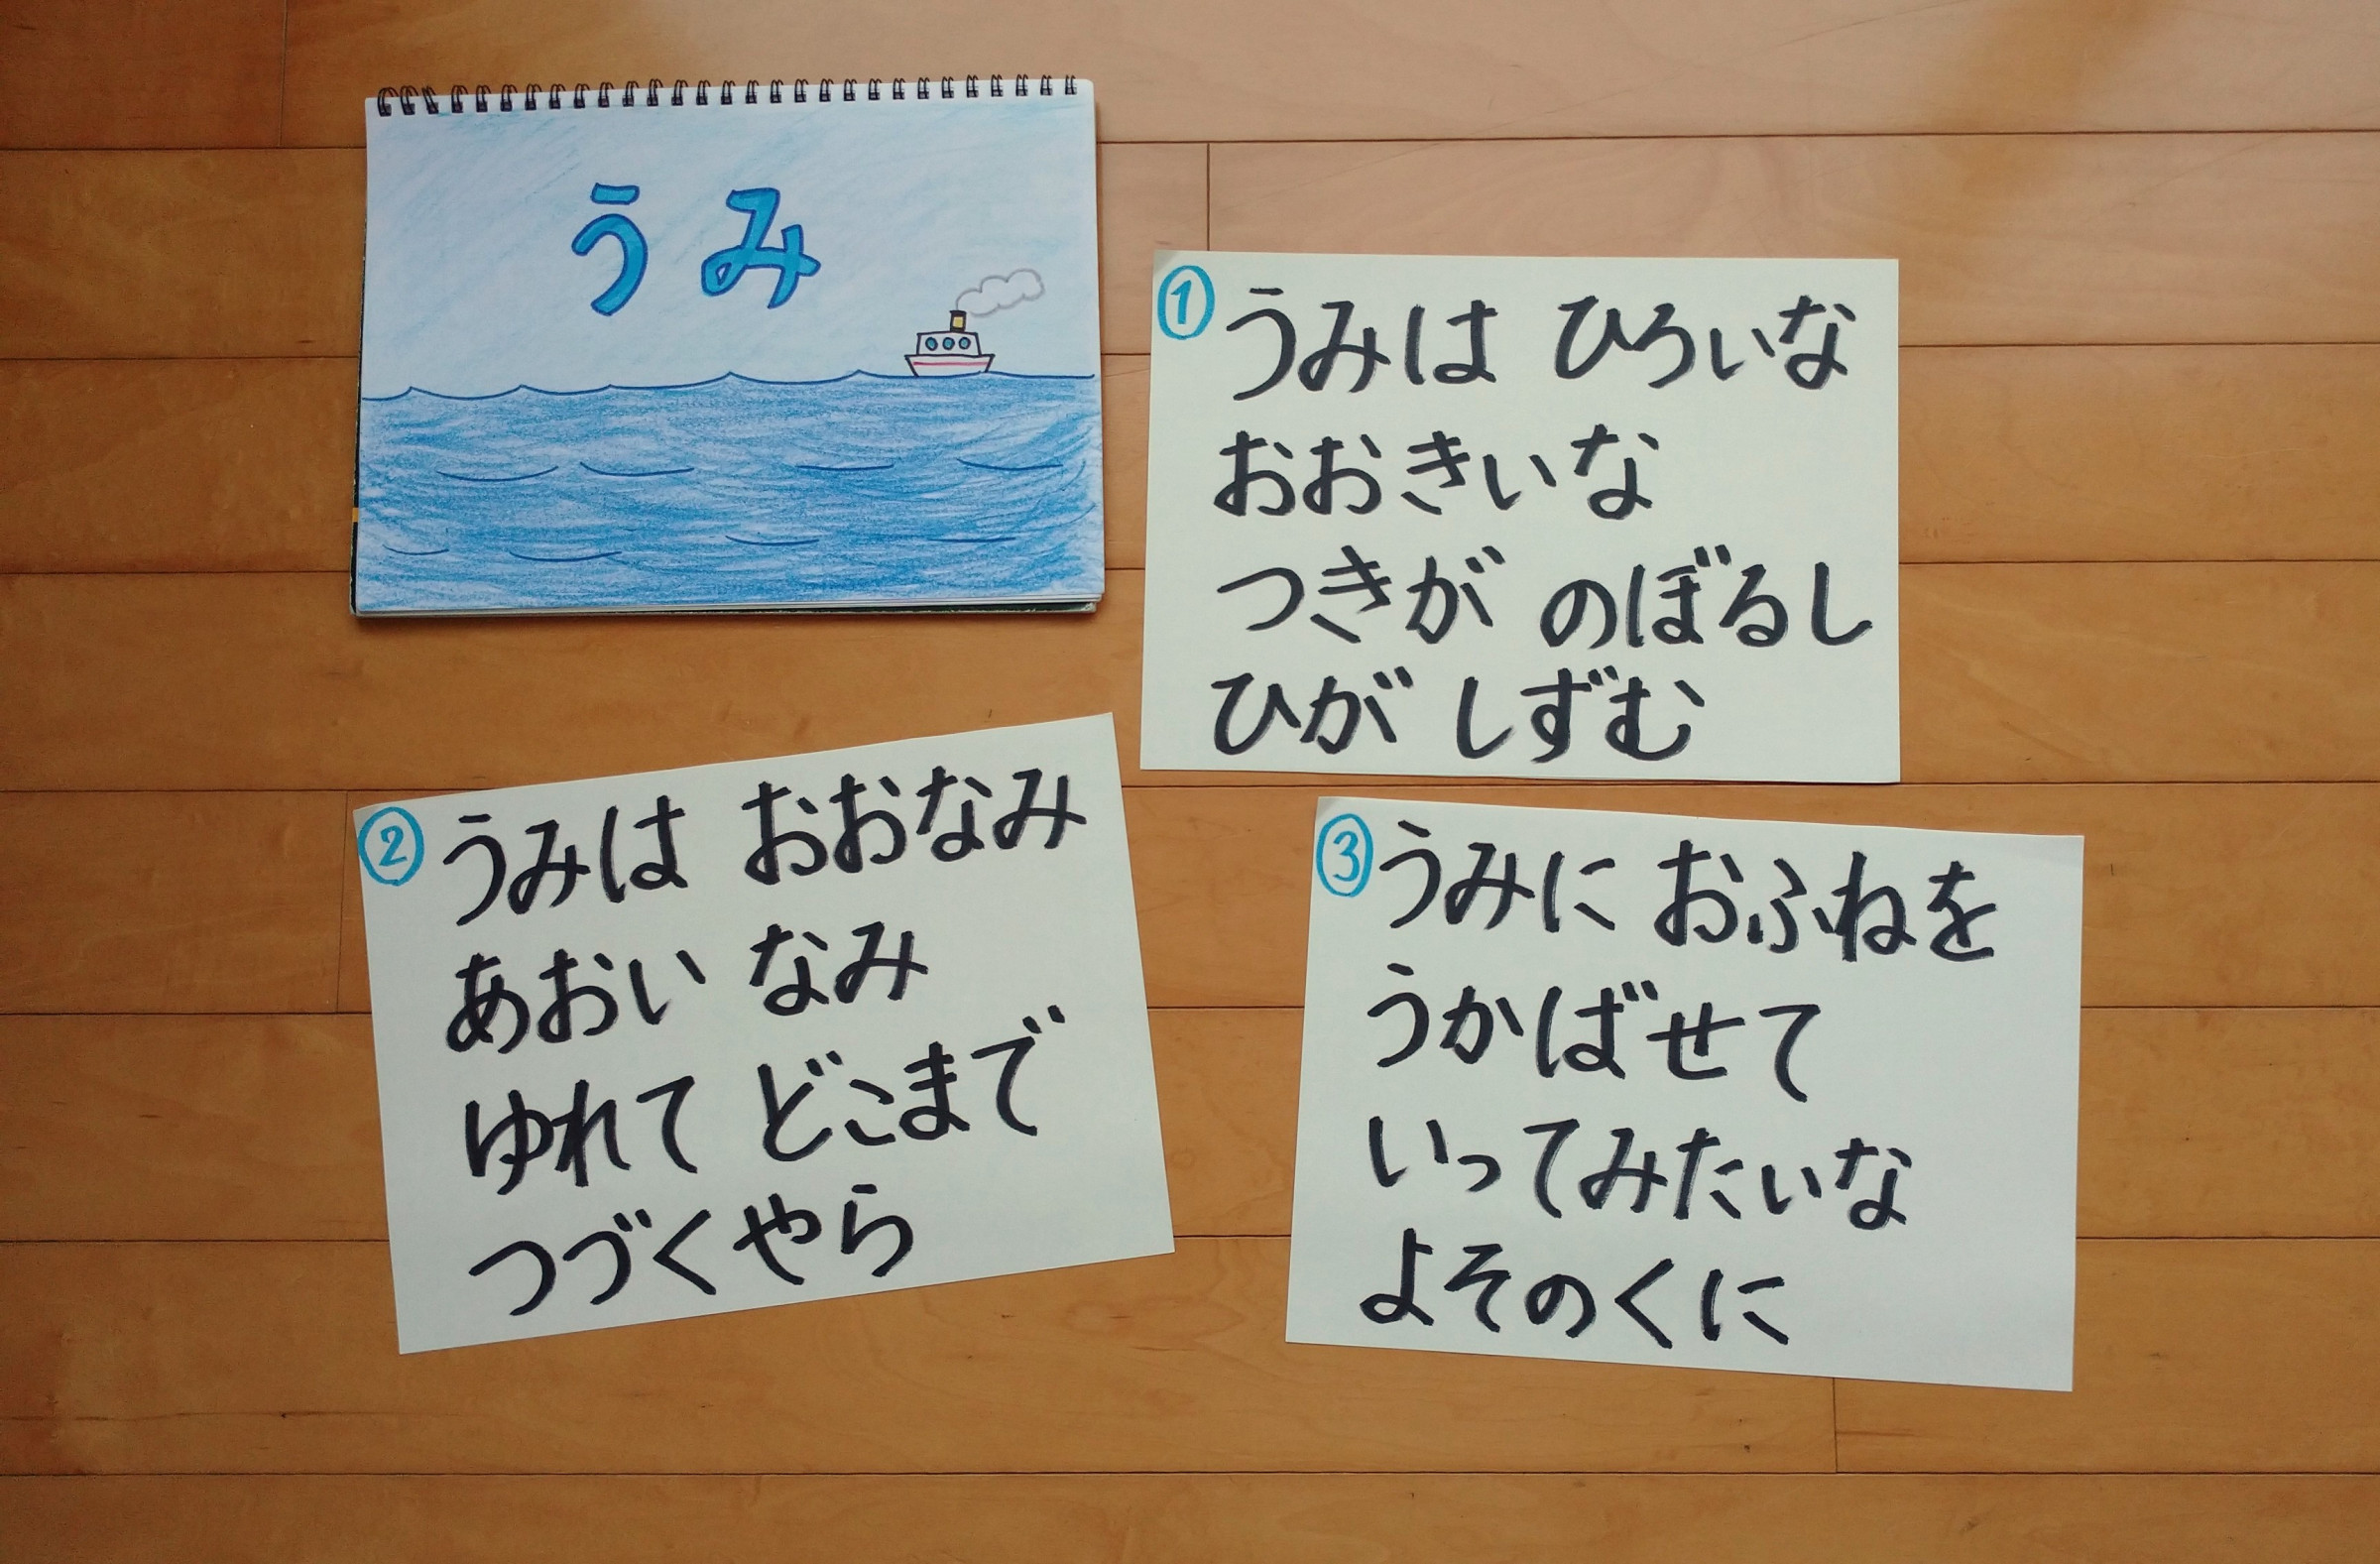 うみ
① うみは ひろいな
おおきいな
つきが のぼるし
ひが しずむ
② うみは おおなみ
あおい なみ
ゆれて どこまで
つづくやら
③ うみに おふねを
うかばせて
いってみたいな
よそのくに